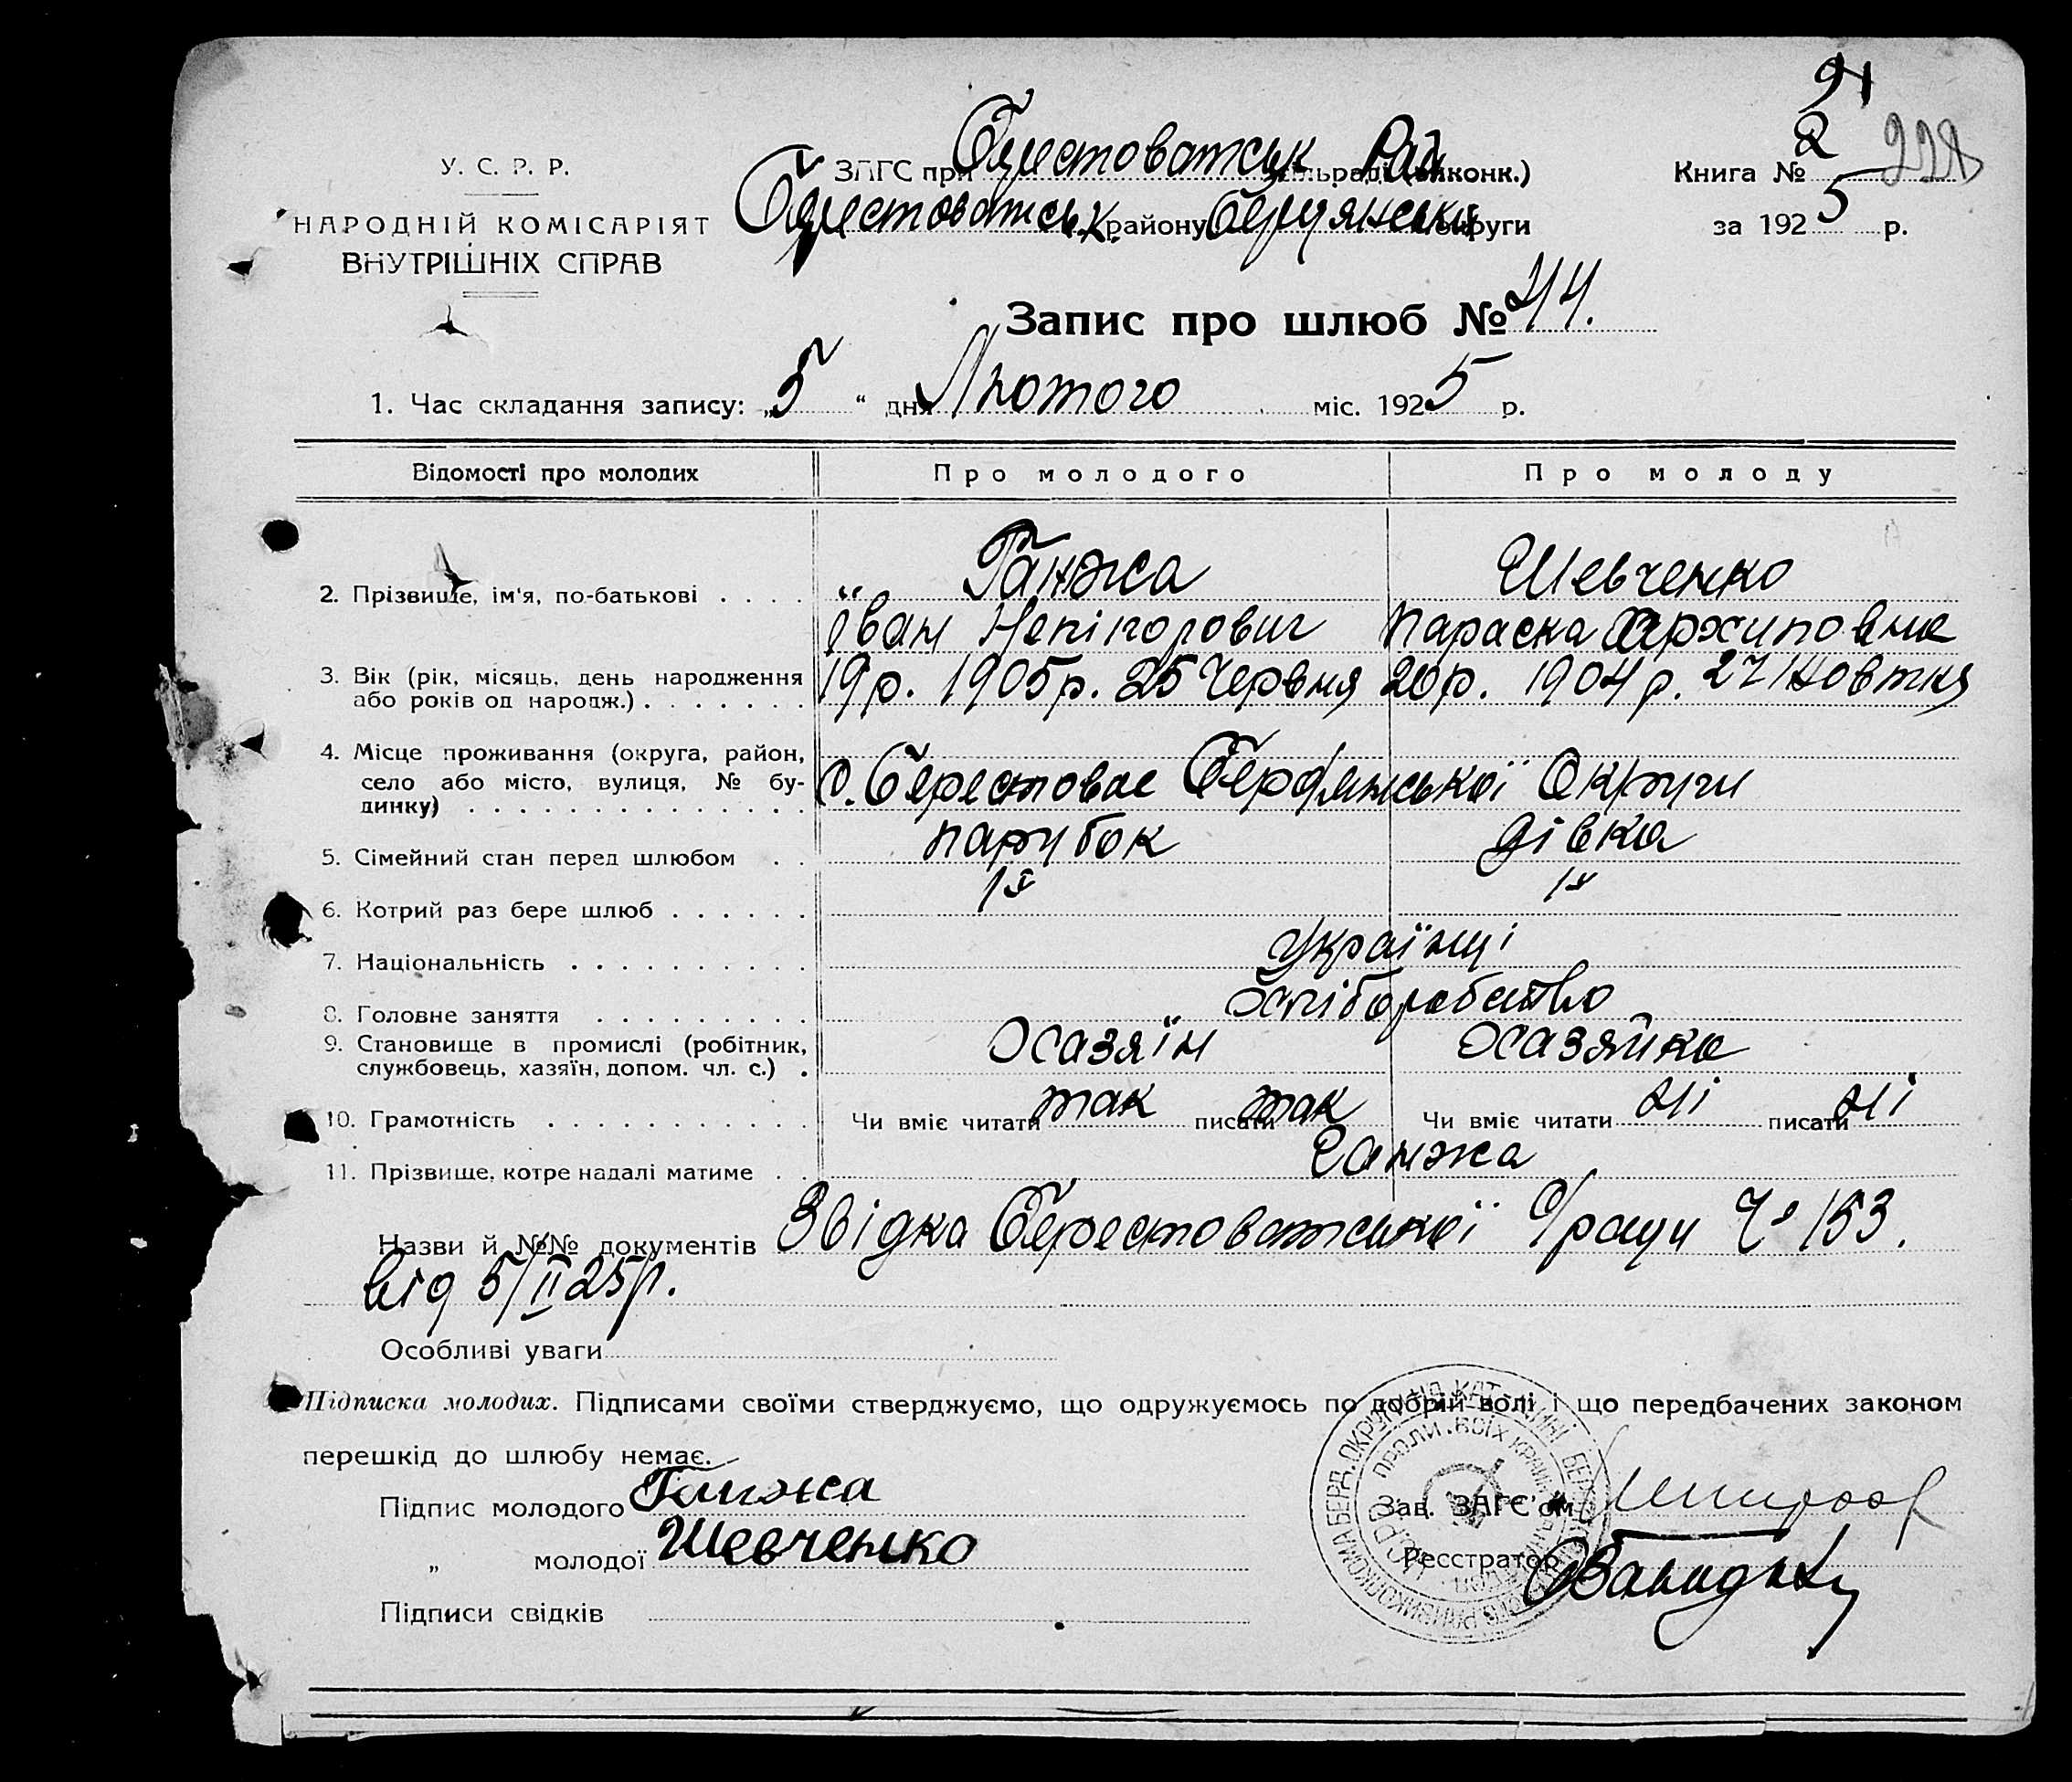 91
У. С. Р. Р.
ЗАГС при Берестоватськ Рай сільраді (виконк.)
Книга № 2 228
НАРОДНІЙ КОМІСАРІЯТ
Берестоватськ. району Бердянськ округи
за 1925 р.
ВНУТРІШНІХ СПРАВ
Запис про шлюб № 44.
1. Час складання запису: „5“ дня Лютого міс. 1925 р.
Відомості про молодих Про молодого Про молоду
Ганжа Шевченко
2. Прізвище, ім'я, по-батькові . . . .
Іван Шевченко
Параска Архиповна
3. Вік (рік, місяць, день народження 19р. 1905р. 25 Червня 20р. 1904р. 27 Жовтня
або років од народж.) . . . . . . .
4. Місце проживання (округа, район,
село або місто, вулиця, № бу- с. Берестовае Бердянської Округи
динку) . . . . . . . . . . . . . .
5. Сімейний стан перед шлюбом . . парубок дівка
6. Котрий раз бере шлюб . . . . . .
7. Національність . . . . . . . . . . Українці
8. Головне заняття . . . . . . . . . хліборобство
9. Становище в промислі (робітник, хазяїн хазяйка
службовець, хазяїн, допом. чл. с.) .
10. Грамотність . . . . . . . . . . . Чи вміє читати так писати так Чи вміє читати ні писати ні
11. Прізвище, котре надалі матиме . . Ганжа
Назви й №№ документів Звідка Берестоватської С/ради Ч° 153.
від 5/II 25р.
Особливі уваги
Підписка молодих. Підписами своїми стверджуємо, що одружуємось по добрій волі і що передбачених законом
перешкід до шлюбу немає.
Підпис молодого Ганжа
Зав. ЗАГС'ом
„ молодої Шевченко
Реєстратор
Підписи свідків